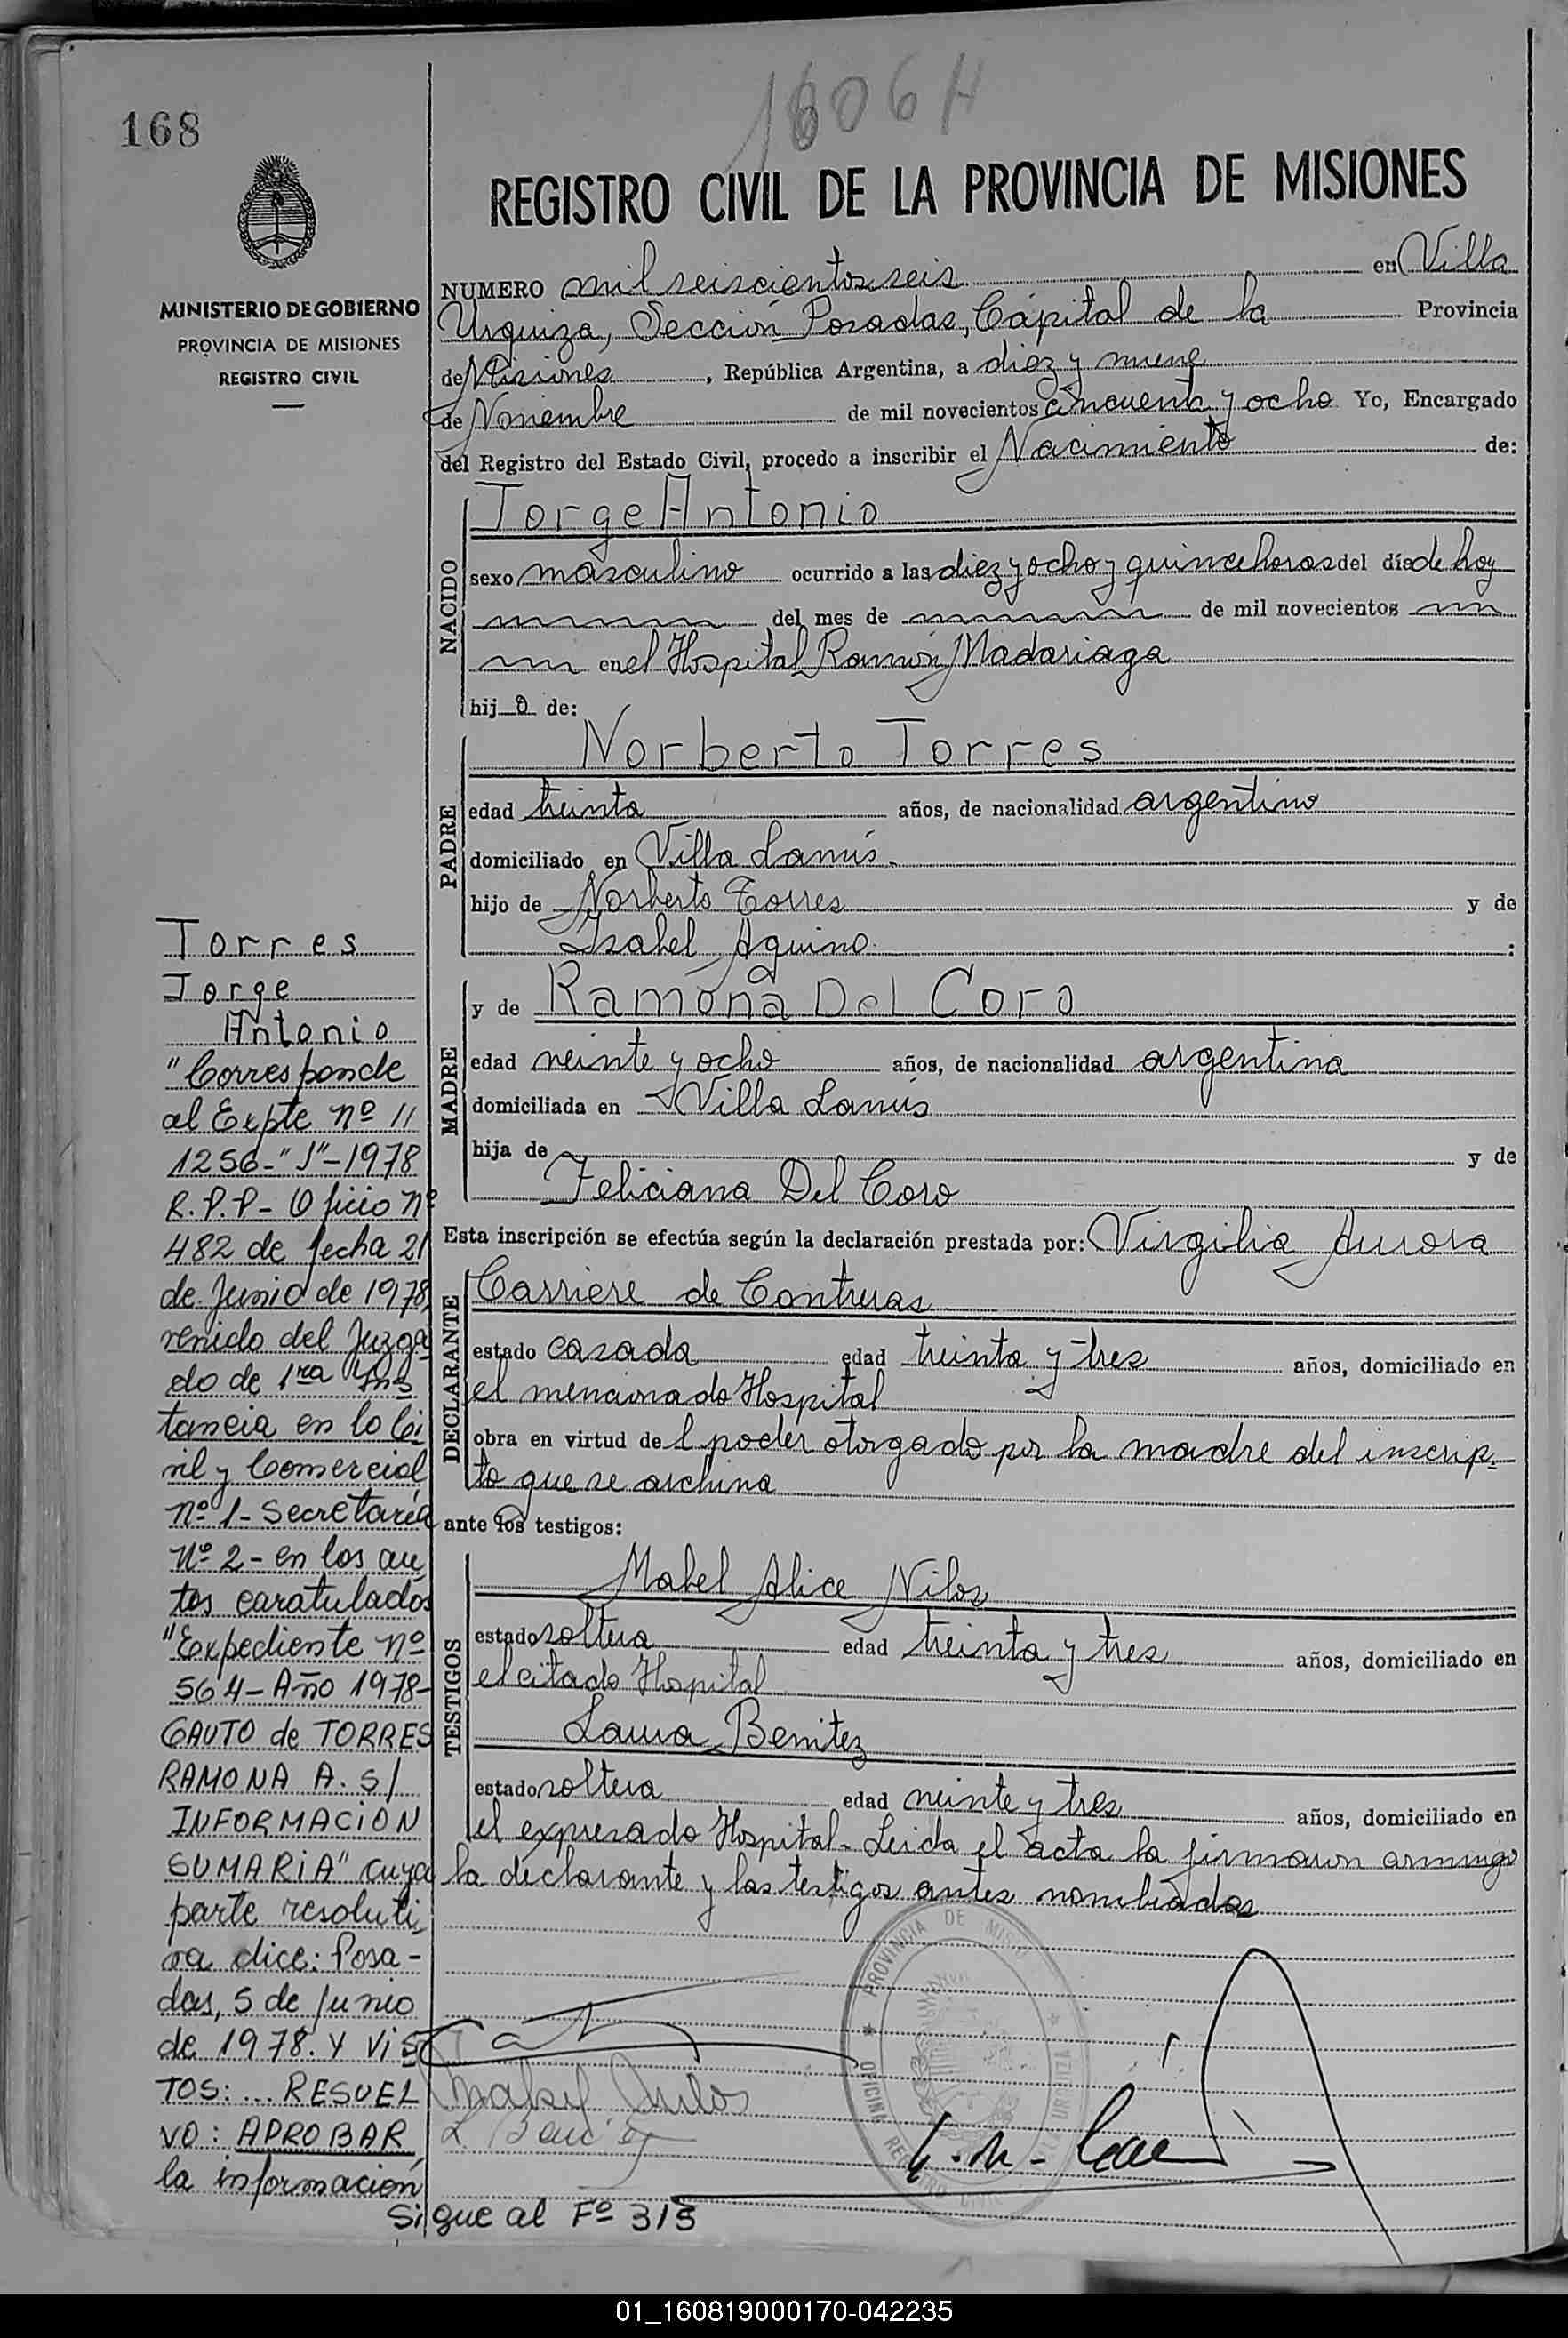 1606 H
168
REGISTRO CIVIL DE LA PROVINCIA DE MISIONES
MINISTERIO DE GOBIERNO
PROVINCIA DE MISIONES
REGISTRO CIVIL
NUMERO mil seiscientos seis en Villa
Urquiza, Sección Posadas, Capital de la Provincia
de Misiones, República Argentina, a diez y nueve
de Noviembre de mil novecientos cincuenta y ocho Yo, Encargado
del Registro del Estado Civil, procedo a inscribir el Nacimiento de:
NACIDO
Jorge Antonio
sexo masculino ocurrido a las diez y ocho y quince horas del día de hoy
del mes de de mil novecientos
en el Hospital Ramón Madariaga
hijo de:
PADRE
Norberto Torres
edad treinta años, de nacionalidad argentino
domiciliado en Villa Lanús
hijo de Norberto Torres y de
Isabel Aquino :
MADRE
y de Ramona Del Coro
edad veinte y ocho años, de nacionalidad argentina
domiciliada en Villa Lanús
hija de y de
Feliciana Del Coro
Esta inscripción se efectúa según la declaración prestada por: Virgilia Aurora
DECLARANTE
Carriere de Contreras
estado casada edad treinta y tres años, domiciliado en
el mencionado Hospital
obra en virtud del poder otorgado por la madre del inscrip-
to que se archiva
ante los testigos:
TESTIGOS
Mabel Alice Nilos
estado soltera edad treinta y tres años, domiciliado en
el citado Hospital
Laura Benitez
estado soltera edad veinte y tres años, domiciliado en
el expresado Hospital - Leida el acta la firmaron conmigo
la declarante y las testigos antes nombradas
Torres
Jorge
Antonio
"Corresponde
al Expte nº 11
1256-"J"-1978
R.P.P- Oficio nº
482 de fecha 21
de Junio de 1978,
venido del Juzga
do de 1ra Ins
tancia en lo Ci
vil y Comercial
nº 1- Secretaría
Nº 2- en los au
tos caratulados
"Expediente nº
564- Año 1978-
GAUTO de TORRES
RAMONA A. S/
INFORMACION
SUMARIA" cuya
parte resoluti
va dice: Posa-
das, 5 de Junio
de 1978. Y VIS
TOS: ... RESUEL
VO: APROBAR
la información
Sigue al Fº 315
PROVINCIA DE MISIONES
OFICINA REGISTRO CIVIL
VILLA URQUIZA
01_160819000170-042235